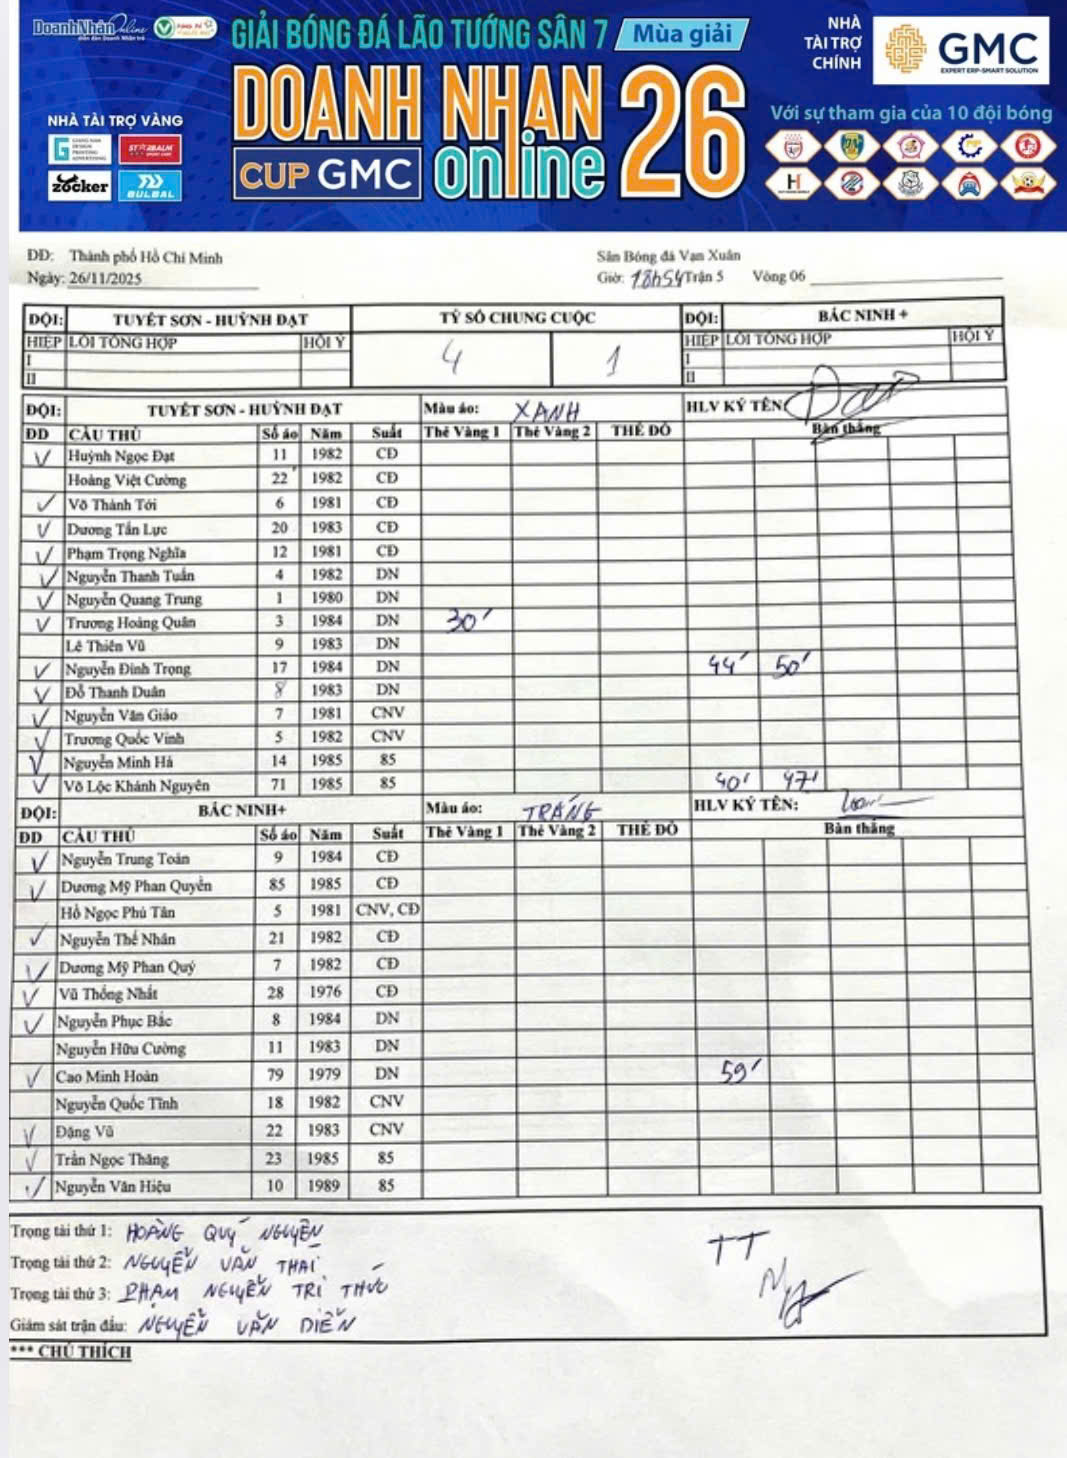 DoanhNhân Online
GIẢI BÓNG ĐÁ LÃO TƯỚNG SÂN 7 Mùa giải
DOANH NHÂN online 26
CUP GMC
NHÀ TÀI TRỢ CHÍNH
GMC
EXPERT ERP-SMART SOLUTION
NHÀ TÀI TRỢ VÀNG
STARBALM
zocker
BULBAL
Với sự tham gia của 10 đội bóng
DD: Thành phố Hồ Chí Minh Sân Bóng đá Vạn Xuân
Ngày: 26/11/2025 Giờ: 18h54 Trận 5 Vòng 06
ĐỘI: TUYẾT SƠN - HUỲNH ĐẠT TỶ SỐ CHUNG CUỘC ĐỘI: BẮC NINH +
HIỆP LỖI TỔNG HỢP HỘI Ý 4 1 HIỆP LỖI TỔNG HỢP HỘI Ý
I I
II II
ĐỘI: TUYẾT SƠN - HUỲNH ĐẠT Màu áo: XANH HLV KÝ TÊN:
DD CẦU THỦ Số áo Năm Suất Thẻ Vàng 1 Thẻ Vàng 2 THẺ ĐỎ Bàn thắng
Huỳnh Ngọc Đạt 11 1982 CĐ
Hoàng Việt Cường 22 1982 CĐ
Võ Thành Tới 6 1981 CĐ
Dương Tấn Lực 20 1983 CĐ
Phạm Trọng Nghĩa 12 1981 CĐ
Nguyễn Thanh Tuấn 4 1982 DN
Nguyễn Quang Trung 1 1980 DN
Trương Hoàng Quân 3 1984 DN 30'
Lê Thiên Vũ 9 1983 DN
Nguyễn Đình Trọng 17 1984 DN 44' 50'
Đỗ Thanh Duân 8 1983 DN
Nguyễn Văn Giáo 7 1981 CNV
Trương Quốc Vinh 5 1982 CNV
Nguyễn Minh Hà 14 1985 85
Võ Lộc Khánh Nguyên 71 1985 85 40' 47'
ĐỘI: BẮC NINH+ Màu áo: TRẮNG HLV KÝ TÊN:
DD CẦU THỦ Số áo Năm Suất Thẻ Vàng 1 Thẻ Vàng 2 THẺ ĐỎ Bàn thắng
Nguyễn Trung Toản 9 1984 CĐ
Dương Mỹ Phan Quyền 85 1985 CĐ
Hồ Ngọc Phú Tân 5 1981 CNV, CĐ
Nguyễn Thế Nhân 21 1982 CĐ
Dương Mỹ Phan Quý 7 1982 CĐ
Vũ Thống Nhất 28 1976 CĐ
Nguyễn Phục Bắc 8 1984 DN
Nguyễn Hữu Cường 11 1983 DN
Cao Minh Hoàn 79 1979 DN 59'
Nguyễn Quốc Tĩnh 18 1982 CNV
Đặng Vũ 22 1983 CNV
Trần Ngọc Thăng 23 1985 85
Nguyễn Văn Hiệu 10 1989 85
Trọng tài thứ 1: HOÀNG QUÝ NGUYÊN
Trọng tài thứ 2: NGUYỄN VĂN THÁI TT
Trọng tài thứ 3: PHẠM NGUYỄN TRI THỨC
Giám sát trận đấu: NGUYỄN VĂN DIỄN
*** CHÚ THÍCH